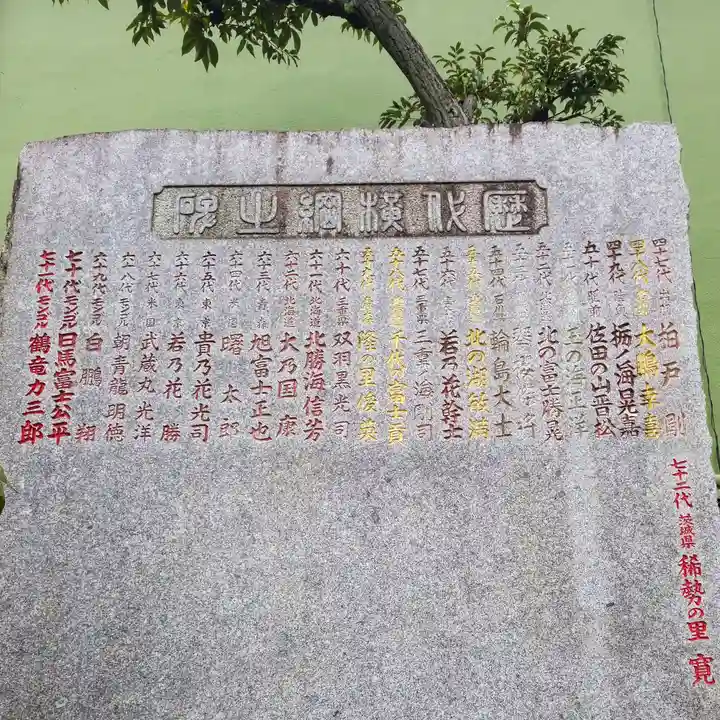 歴代横綱之碑
四十七代 柏戸 剛
四十八代 大鵬幸喜
四十九代 栃ノ海晃嘉
五十代 佐田の山晋松
玉の海正洋
北の富士勝晃
五十四代 石川 輪島大士
北の湖敏満
若乃花幹士
五十七代 三重県 三重ノ海剛司
千代の富士貢
隆の里俊英
六十代 三重県 双羽黒光司
六十一代 北海道 北勝海信芳
六十二代 北海道 大乃国 康
六十三代 青森 旭富士正也
六十四代 米国 曙 太郎
六十五代 東京 貴乃花光司
六十六代 東京 若乃花 勝
六十七代 米国 武蔵丸光洋
六十八代 モンゴル 朝青龍明徳
六十九代 モンゴル 白鵬 翔
七十代 モンゴル 日馬富士公平
七十一代 モンゴル 鶴竜力三郎
七十二代 茨城県 稀勢の里 寛